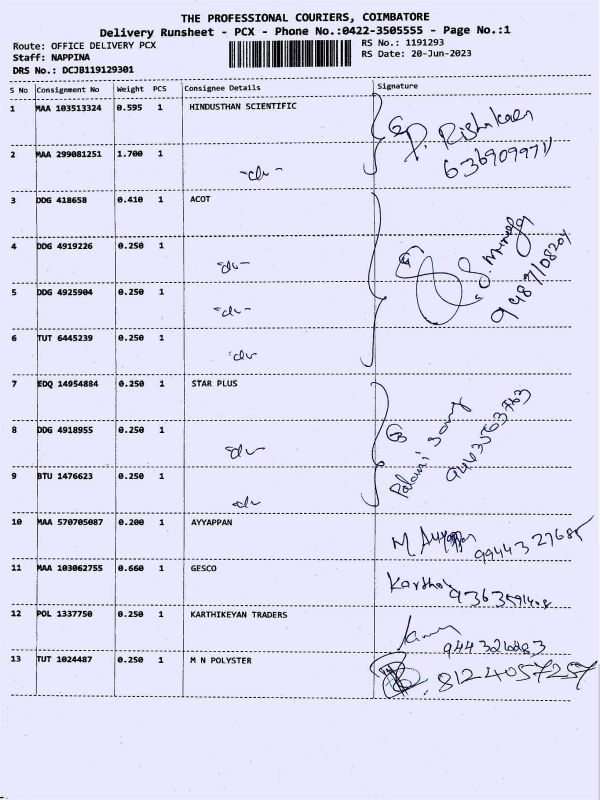 THE PROFESSIONAL COURIERS, COIMBATORE
Delivery Runsheet - PCX - Phone No.:0422-3505555 - Page No.:1
Route: OFFICE DELIVERY PCX
RS No.: 1191293
Staff: NAPPINA
RS Date: 20-Jun-2023
DRS No.: DCJB119129301
S No Consignment No Weight PCS Consignee Details Signature
1 MAA 103513324 0.595 1 HINDUSTHAN SCIENTIFIC
2 MAA 299081251 1.700 1 -do-
3 DDG 418658 0.410 1 ACOT
4 DDG 4919226 0.250 1 -do-
5 DDG 4925904 0.250 1 -do-
6 TUT 6445239 0.250 1 -do-
7 EDQ 14954884 0.250 1 STAR PLUS
8 DDG 4918955 0.250 1 -do-
9 BTU 1476623 0.250 1 -do-
10 MAA 570705087 0.200 1 AYYAPPAN M. Ayyappan 9944327685
11 MAA 103062755 0.660 1 GESCO
12 POL 1337750 0.250 1 KARTHIKEYAN TRADERS
13 TUT 1024487 0.250 1 M N POLYSTER 8124057257